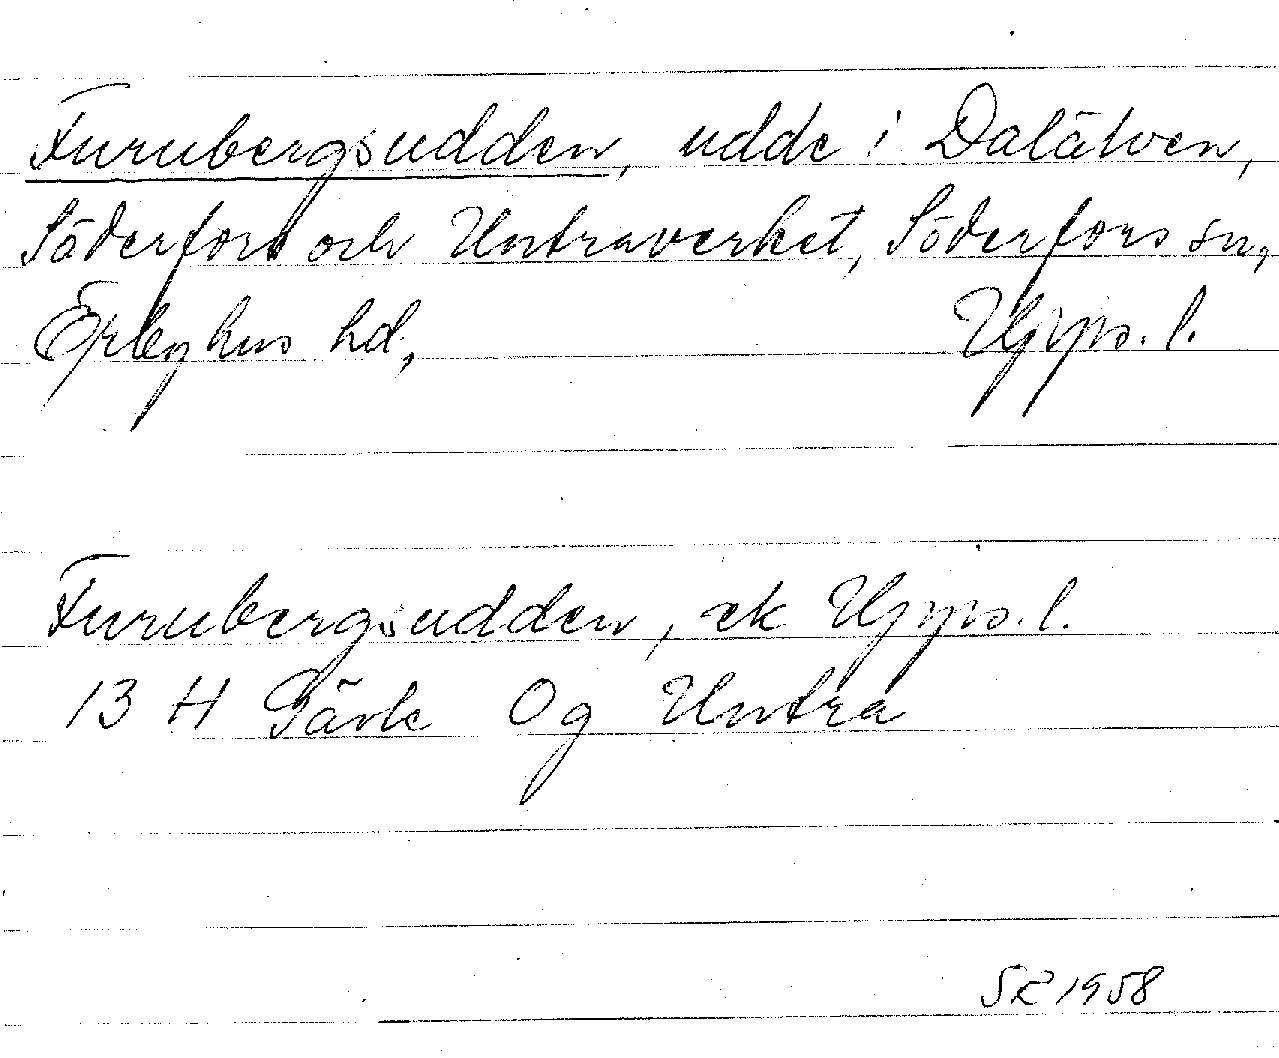 Furubergsudden, udde i Dalälven,
Söderfors och Untraverket, Söderfors sn,
Örbyhus hd, Upps. l.
Furubergsudden, ek Upps. l.
13 H Gävle Og Untra
SR 1958